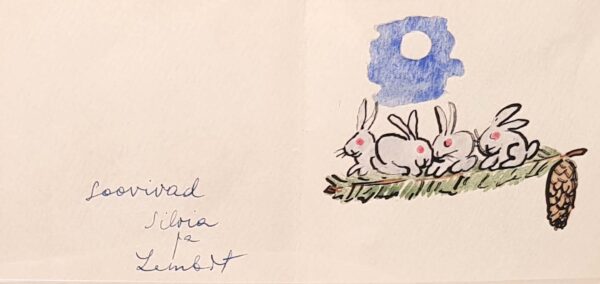 Soovivad
Silvia
ja
Lembit